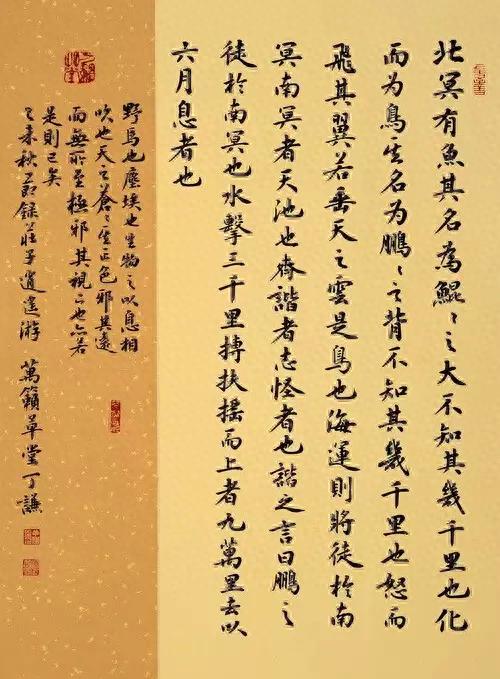 北冥有魚其名為鯤〻之大不知其幾千里也化
而为鳥其名为鵬〻之背不知其幾千里也怒而
飛其翼若垂天之雲是鳥也海運則將徒於南
冥南冥者天池也齊諧者志怪者也諧之言曰鵬之
徒於南冥也水擊三千里摶扶搖而上者九萬里去以
六月息者也
野馬也塵埃也生物之以息相
吹也天之蒼〻其正色邪其遠
而無所至極邪其視下也亦若
是則已矣
乙未秋節錄莊子逍遙游 萬籟草堂丁謙